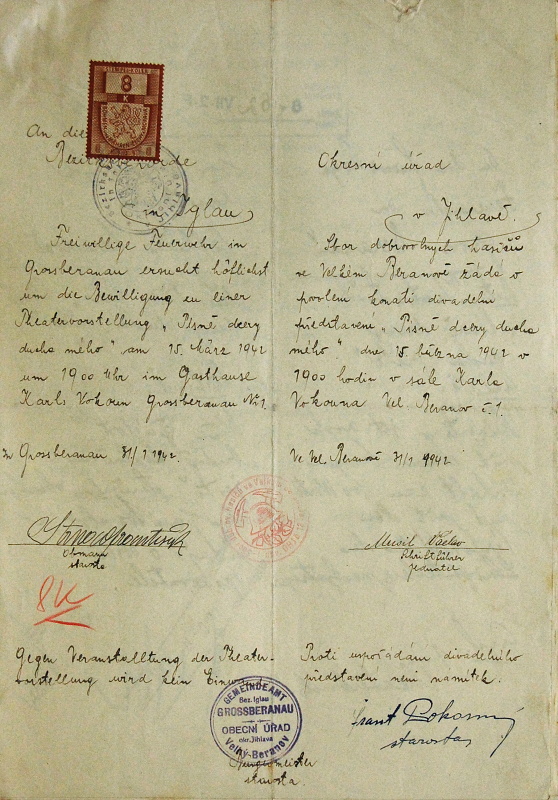 8
K
An die
Bezirksbehörde
in Iglau
Freiwillige Feuerwehr in
Grossberanau ersucht höflichst
um die Bewilligung eu einer
Theatervorstellung „Pisně dcery
ducha mého" am 15. März 1942
um 19 00 Uhr im Gasthause
Karls Vokoun Grossberanau Nr 1.
In Grossberanau 31/1 1942.
Obmann
starosta
8K
Gegen Veranstalltung der Theater-
vorstellung wird kein Einwand
Okresní úřad
v Jihlavě.
Sbor dobrovolných hasičů
ve Velkém Beranově žádá o
povolení konati divadelní
představení „Pisně dcery ducha
mého" dne 15 března 1942 v
19 00 hodin v sále Karla
Vokouna Vel. Beranov č. 1.
Ve Vel. Beranově 31/1 1942
Musil Václav
Schriftführer
jednatel
Proti uspořádání divadelního
představení není námitek.
GEMEINDEAMT
Bez. Iglau
GROSSBERANAU
OBECNÍ ÚŘAD
okr. Jihlava
Velký-Beranov
Bürgermeister
starosta.
Frant Pokorný
starosta